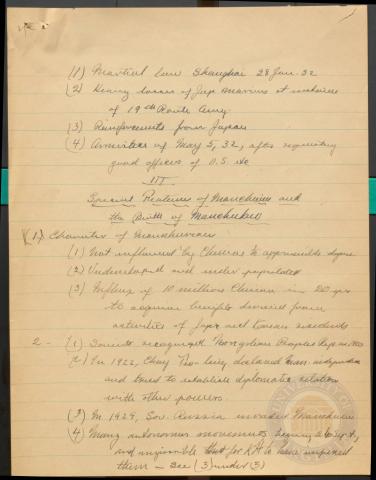 (1) Martial Law Shanghai 28 Jan. 32
(2) Heavy losses of Jap marines at
of 19th Route Army
(3) Reinforcements from Japan
(4) Armistice of May 5, 32, after requesting
good offices of U.S. etc
III
Special Features of Manchuria and
the Birth of Manchukuo
(1) Character of Manchurians
(1) Not influenced by Chinese to appreciable degree
(2) Undeveloped and under populated
(3) Influx of 10 millions Chinese in 20 yrs
to acquire benefits derived from
activities of Japs and Korean residents
2 - (1) Soviets recognized Mongolian Peoples Rep. in
(2) In 1922, Chang Tso-ling declared Man. independence
and tried to establish diplomatic relation
with other powers.
(3) In 1929, Sov. Russia invaded Manchuria
(4) Many autonomous movements
and impossible for K.A. to have inspired
them - See (3) under (3)